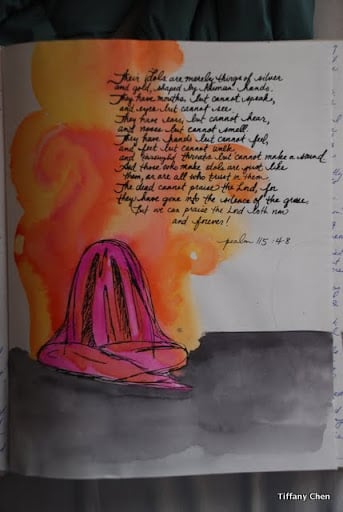 Their idols are merely things of silver
and gold, shaped by human hands.
They have mouths, but cannot speak,
and eyes but cannot see.
They have ears, but cannot hear,
and noses but cannot smell.
They have hands but cannot feel,
and feet but cannot walk
and throats but cannot make a sound.
And those who make idols are just like
them, as are all who trust in them.
The dead cannot praise the Lord, for
they have gone into the silence of the grave.
But we can praise the Lord both now
and forever!
psalm 115:4-8
Tiffany Chen